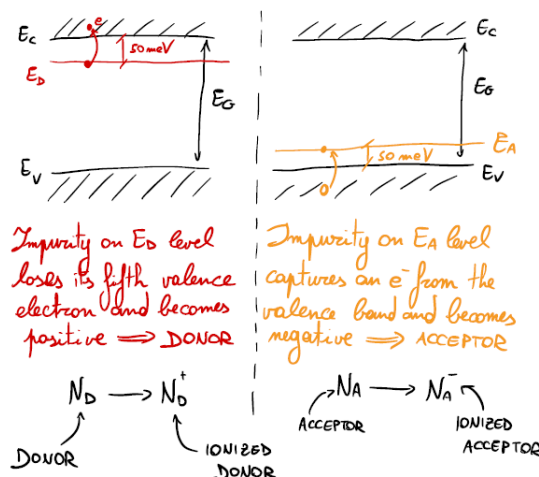 E_C
e
50meV
E_D
E_G
E_V
Impurity on E_D level
loses its fifth valence
electron and becomes
positive ⟹ DONOR
N_D → N_D^+
DONOR
IONIZED
DONOR
E_C
E_G
E_A
50meV
E_V
Impurity on E_A level
captures an e^- from the
valence band and becomes
negative ⟹ ACCEPTOR
N_A → N_A^-
ACCEPTOR
IONIZED
ACCEPTOR